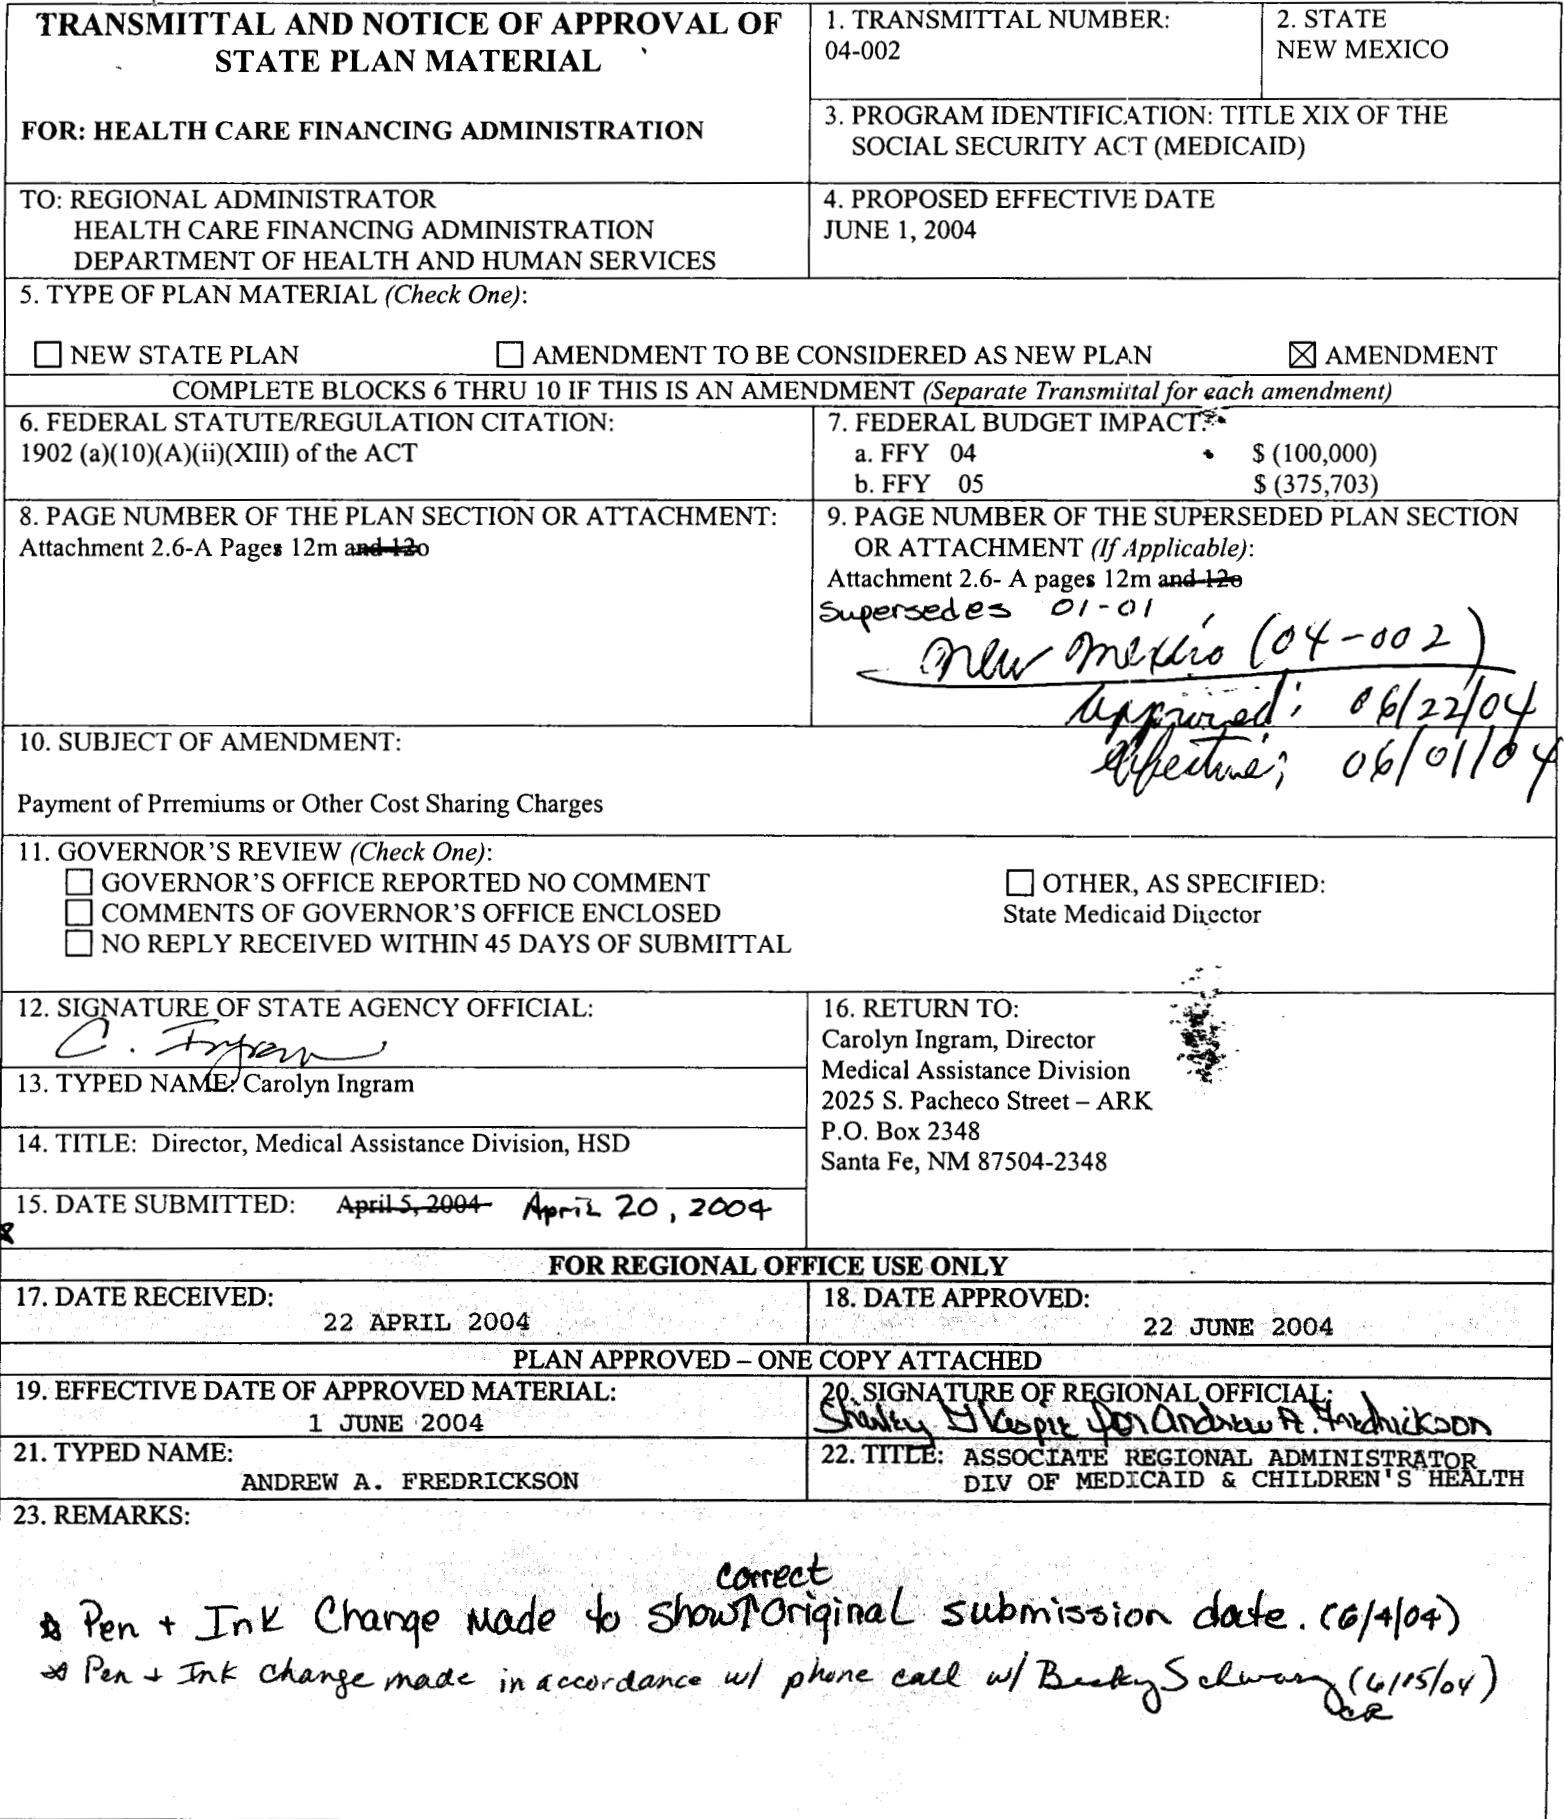 TRANSMITTAL AND NOTICE OF APPROVAL OF
STATE PLAN MATERIAL
FOR: HEALTH CARE FINANCING ADMINISTRATION
1. TRANSMITTAL NUMBER:
04-002
2. STATE
NEW MEXICO
3. PROGRAM IDENTIFICATION: TITLE XIX OF THE
SOCIAL SECURITY ACT (MEDICAID)
TO: REGIONAL ADMINISTRATOR
HEALTH CARE FINANCING ADMINISTRATION
DEPARTMENT OF HEALTH AND HUMAN SERVICES
4. PROPOSED EFFECTIVE DATE
JUNE 1, 2004
5. TYPE OF PLAN MATERIAL (Check One):
NEW STATE PLAN
AMENDMENT TO BE CONSIDERED AS NEW PLAN
AMENDMENT
COMPLETE BLOCKS 6 THRU 10 IF THIS IS AN AMENDMENT (Separate Transmittal for each amendment)
6. FEDERAL STATUTE/REGULATION CITATION:
1902 (a)(10)(A)(ii)(XIII) of the ACT
7. FEDERAL BUDGET IMPACT:
a. FFY 04 $ (100,000)
b. FFY 05 $ (375,703)
8. PAGE NUMBER OF THE PLAN SECTION OR ATTACHMENT:
Attachment 2.6-A Pages 12m and 12o
9. PAGE NUMBER OF THE SUPERSEDED PLAN SECTION
OR ATTACHMENT (If Applicable):
Attachment 2.6- A pages 12m and 12o
Supersedes 01-01
New Mexico (04-002)
Approved: 06/22/04
Effective: 06/01/04
10. SUBJECT OF AMENDMENT:
Payment of Prremiums or Other Cost Sharing Charges
11. GOVERNOR'S REVIEW (Check One):
GOVERNOR'S OFFICE REPORTED NO COMMENT
COMMENTS OF GOVERNOR'S OFFICE ENCLOSED
NO REPLY RECEIVED WITHIN 45 DAYS OF SUBMITTAL
OTHER, AS SPECIFIED:
State Medicaid Director
12. SIGNATURE OF STATE AGENCY OFFICIAL:
C. Ingram
13. TYPED NAME: Carolyn Ingram
14. TITLE: Director, Medical Assistance Division, HSD
15. DATE SUBMITTED: April 5, 2004 April 20, 2004
16. RETURN TO:
Carolyn Ingram, Director
Medical Assistance Division
2025 S. Pacheco Street – ARK
P.O. Box 2348
Santa Fe, NM 87504-2348
FOR REGIONAL OFFICE USE ONLY
17. DATE RECEIVED:
22 APRIL 2004
18. DATE APPROVED:
22 JUNE 2004
PLAN APPROVED – ONE COPY ATTACHED
19. EFFECTIVE DATE OF APPROVED MATERIAL:
1 JUNE 2004
20. SIGNATURE OF REGIONAL OFFICIAL:
for Andrew A. Fredrickson
21. TYPED NAME:
ANDREW A. FREDRICKSON
22. TITLE: ASSOCIATE REGIONAL ADMINISTRATOR
DIV OF MEDICAID & CHILDREN'S HEALTH
23. REMARKS:
correct
Pen + Ink Change Made to show Original submission date. (6/4/04)
Pen + Ink change made in accordance w/ phone call w/ Becky Schwarz (6/15/04)
CR